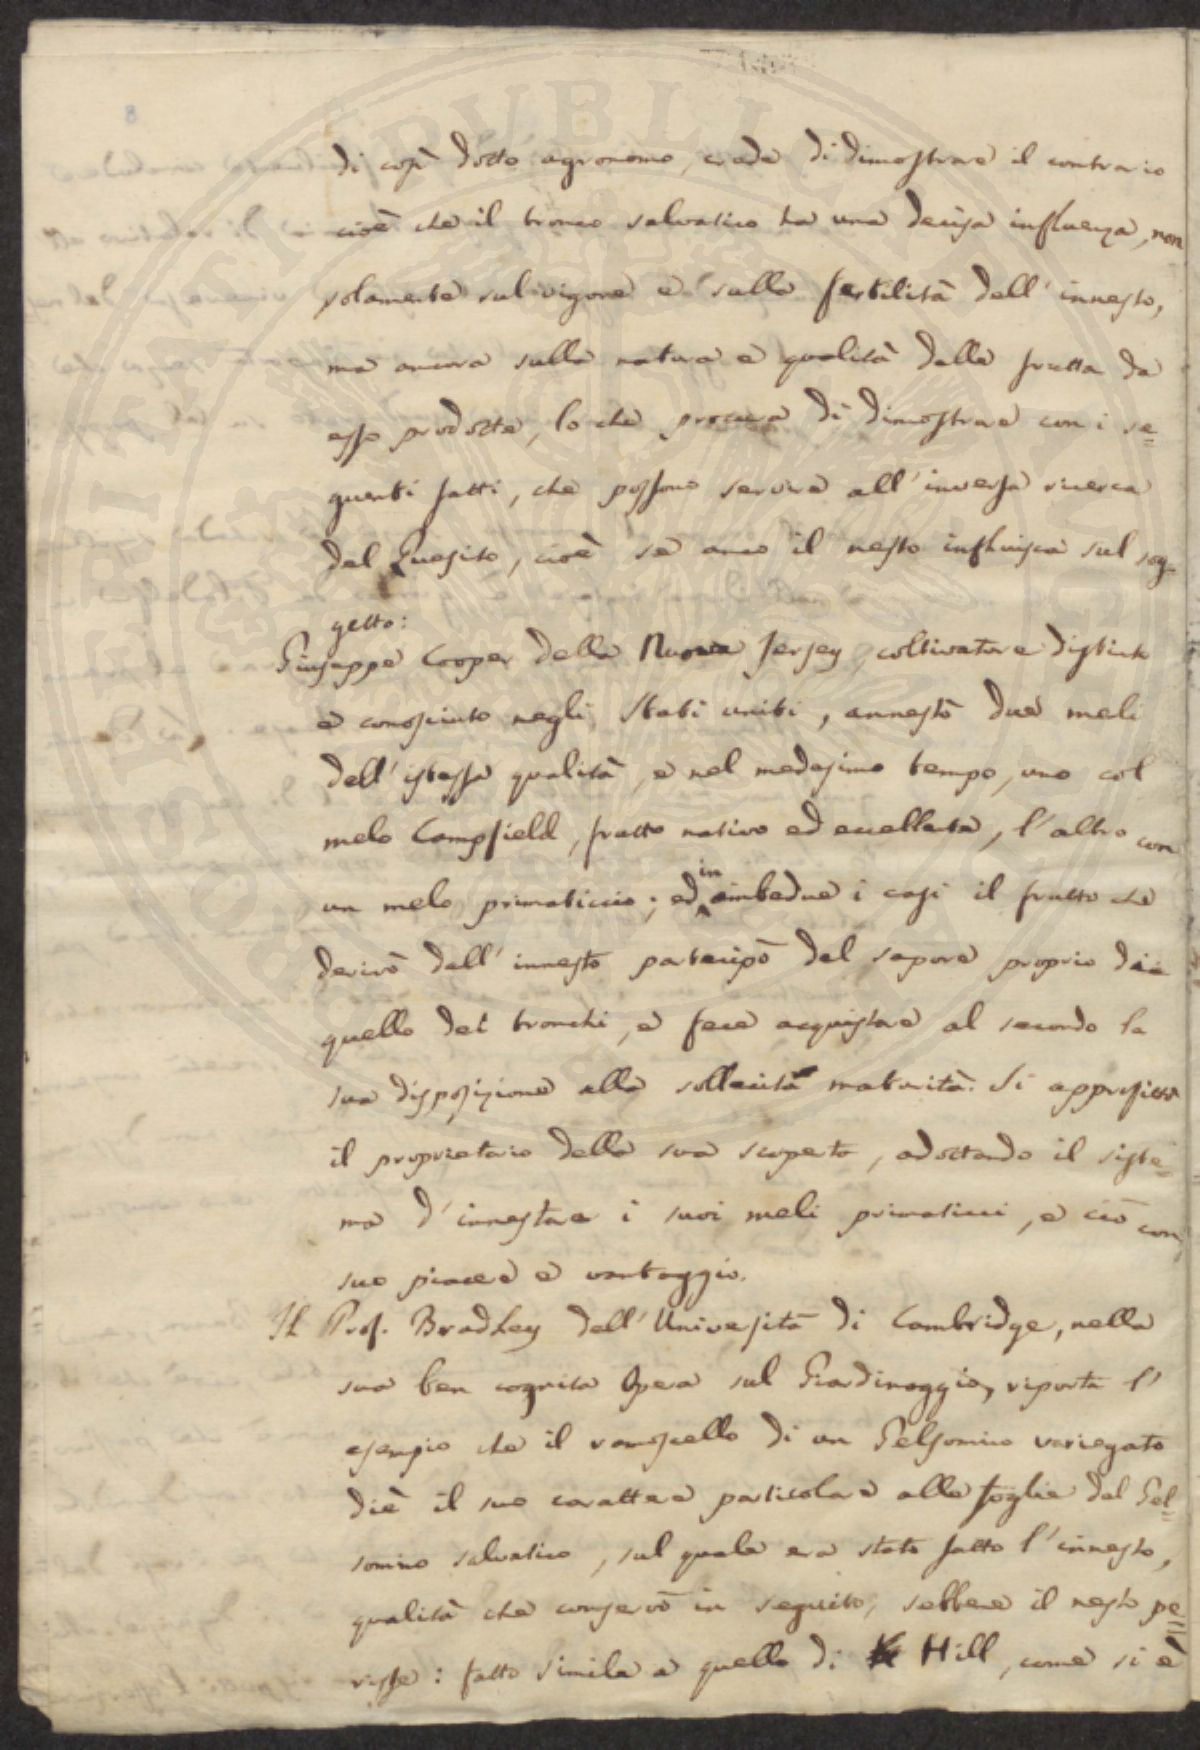 di così dotto agronomo, crede di dimostrare il contrario
cioè che il tronco salvatico ha una decisa influenza, non
solamente sul vigore e sulla fertilità dell'innesto,
ma ancora sulla natura e qualità delle frutta da
esso prodotte, lo che procura di dimostrare con i se=
guenti fatti, che possono servire all'inversa ricerca
del Quesito, cioè se anco il nesto influisca sul sog-
getto:
Giuseppe Cooper della Nuova Jersey, coltivatore distinto
e conosciuto negli Stati uniti, annestò due meli
dell'istessa qualità, e nel medesimo tempo, uno col
melo Campfield, frutto nativo ed eccellente, l'altro con
un melo primaticcio; ed in ambedue i casi il frutto che
derivò dall'innesto partecipò del sapore proprio di
quello dei tronchi, e fece acquistare al secondo la
sua disposizione alla sollecita maturità. Si approfittò
il proprietario della sua scoperta, adottando il siste=
ma d'innestare i suoi meli primaticci, e ciò con
suo piacere e vantaggio.
Il Prof. Bradley dell'Università di Cambridge, nella
sua ben cognita Opera sul Giardinaggio, riporta l'
esempio che il ramoscello di un Gelsomino variegato
diè il suo carattere particolare alle foglie del Gel=
somino salvatico, sul quale era stato fatto l'innesto,
qualità che conservò in seguito, sebbene il nesto pe=
risse: fatto simile a quello di Hill, come si è